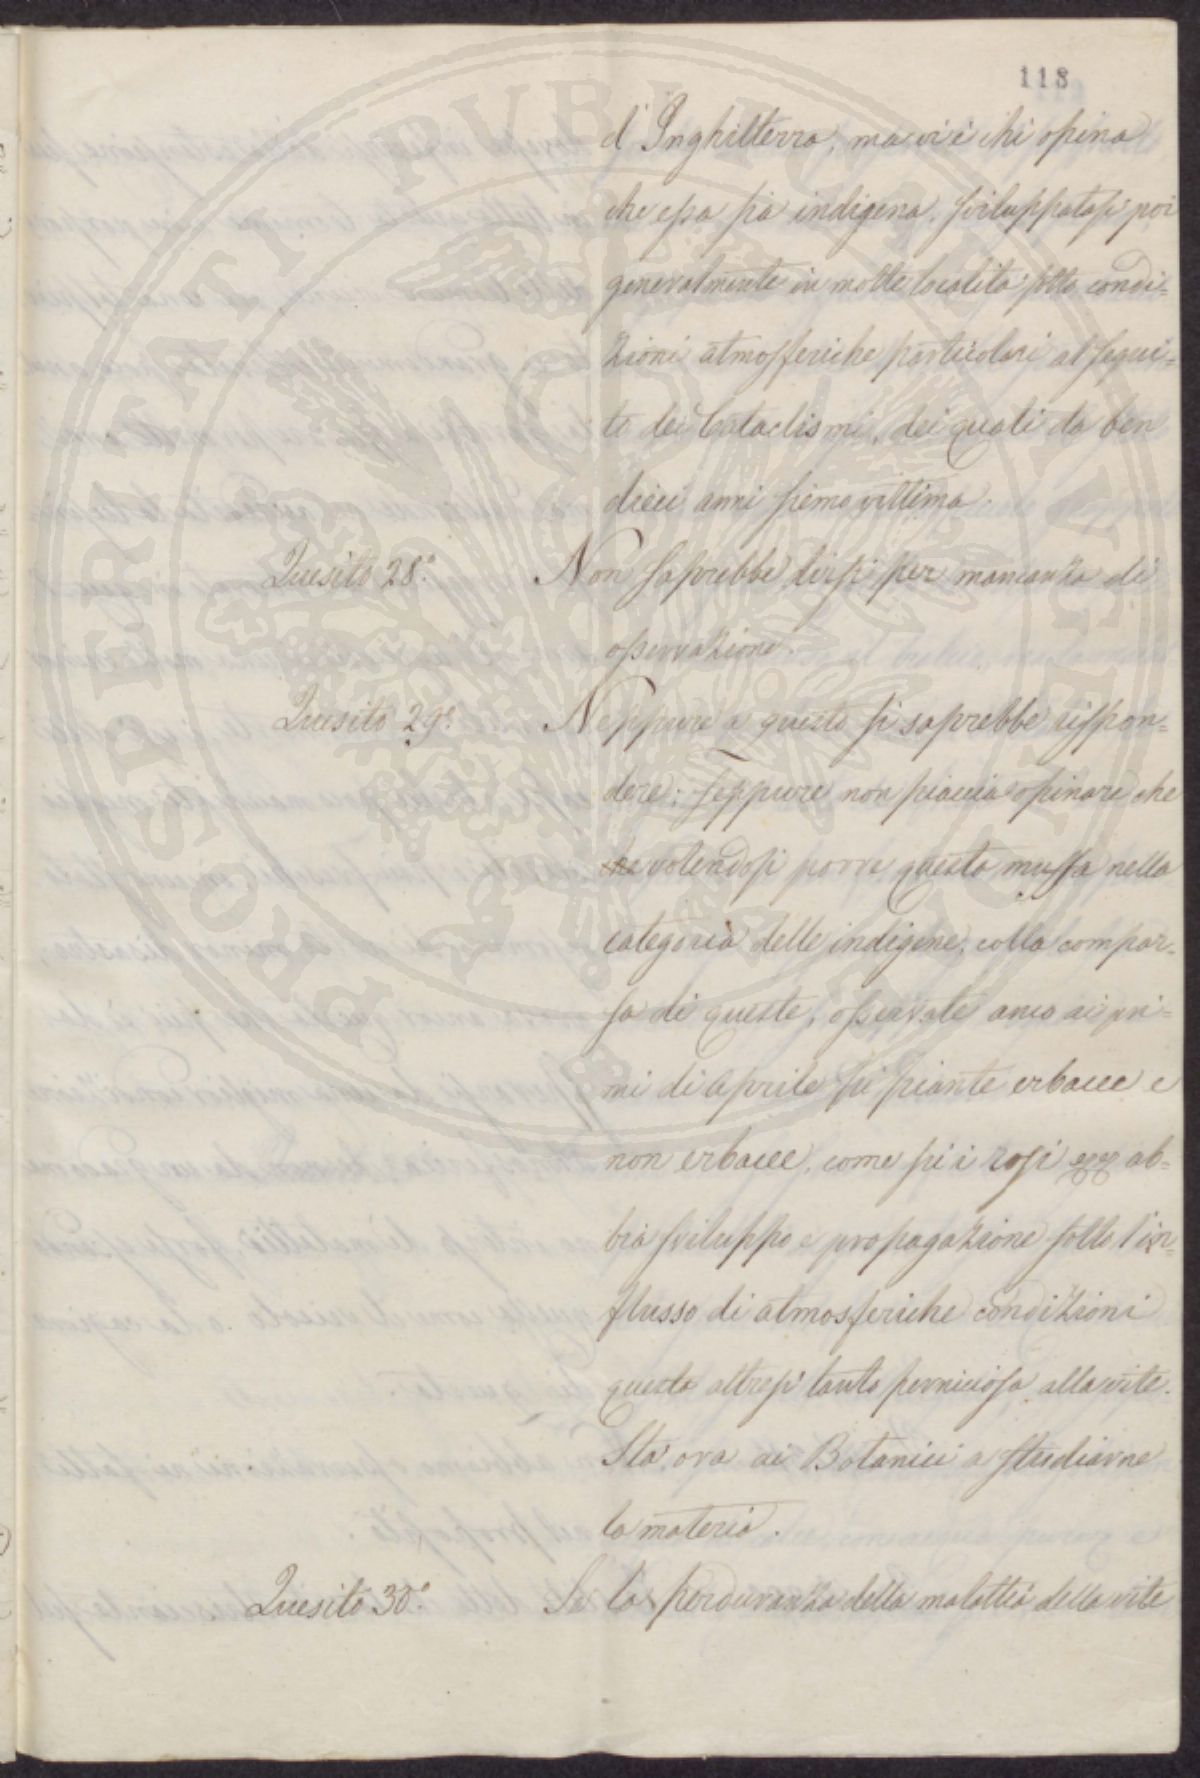 118
d'Inghilterra, ma vi è chi opina
che essa sia indigena, sviluppatasi poi
generalmente in molte località sotto condi=
zioni atmosferiche particolari al segui=
to dei Cataclismi, dei quali da ben
dieci anni siemo vittima.
Quesito 28.° Non saprebbe dirsi per mancanza di
osservazione.
Quesito 29.° Neppure a questo si saprebbe rispon=
dere; seppure non piaccia opinare che
che volendosi porre questa muffa nella
categoria delle indigene, colla compar=
sa di queste, osservate anco ai pri=
mi di Aprile su piante erbacee e
non erbacee, come su i rosi ab=
bia sviluppo e propagazione sotto l'in=
flusso di atmosferiche condizioni
questa altresì tanto perniciosa alla vite.
Sta ora ai Botanici a studiarne
la materia.
Quesito 30.° Se la perduranza della malattia della vite
PROSPERITATI PUBLICAE AUGENDAE